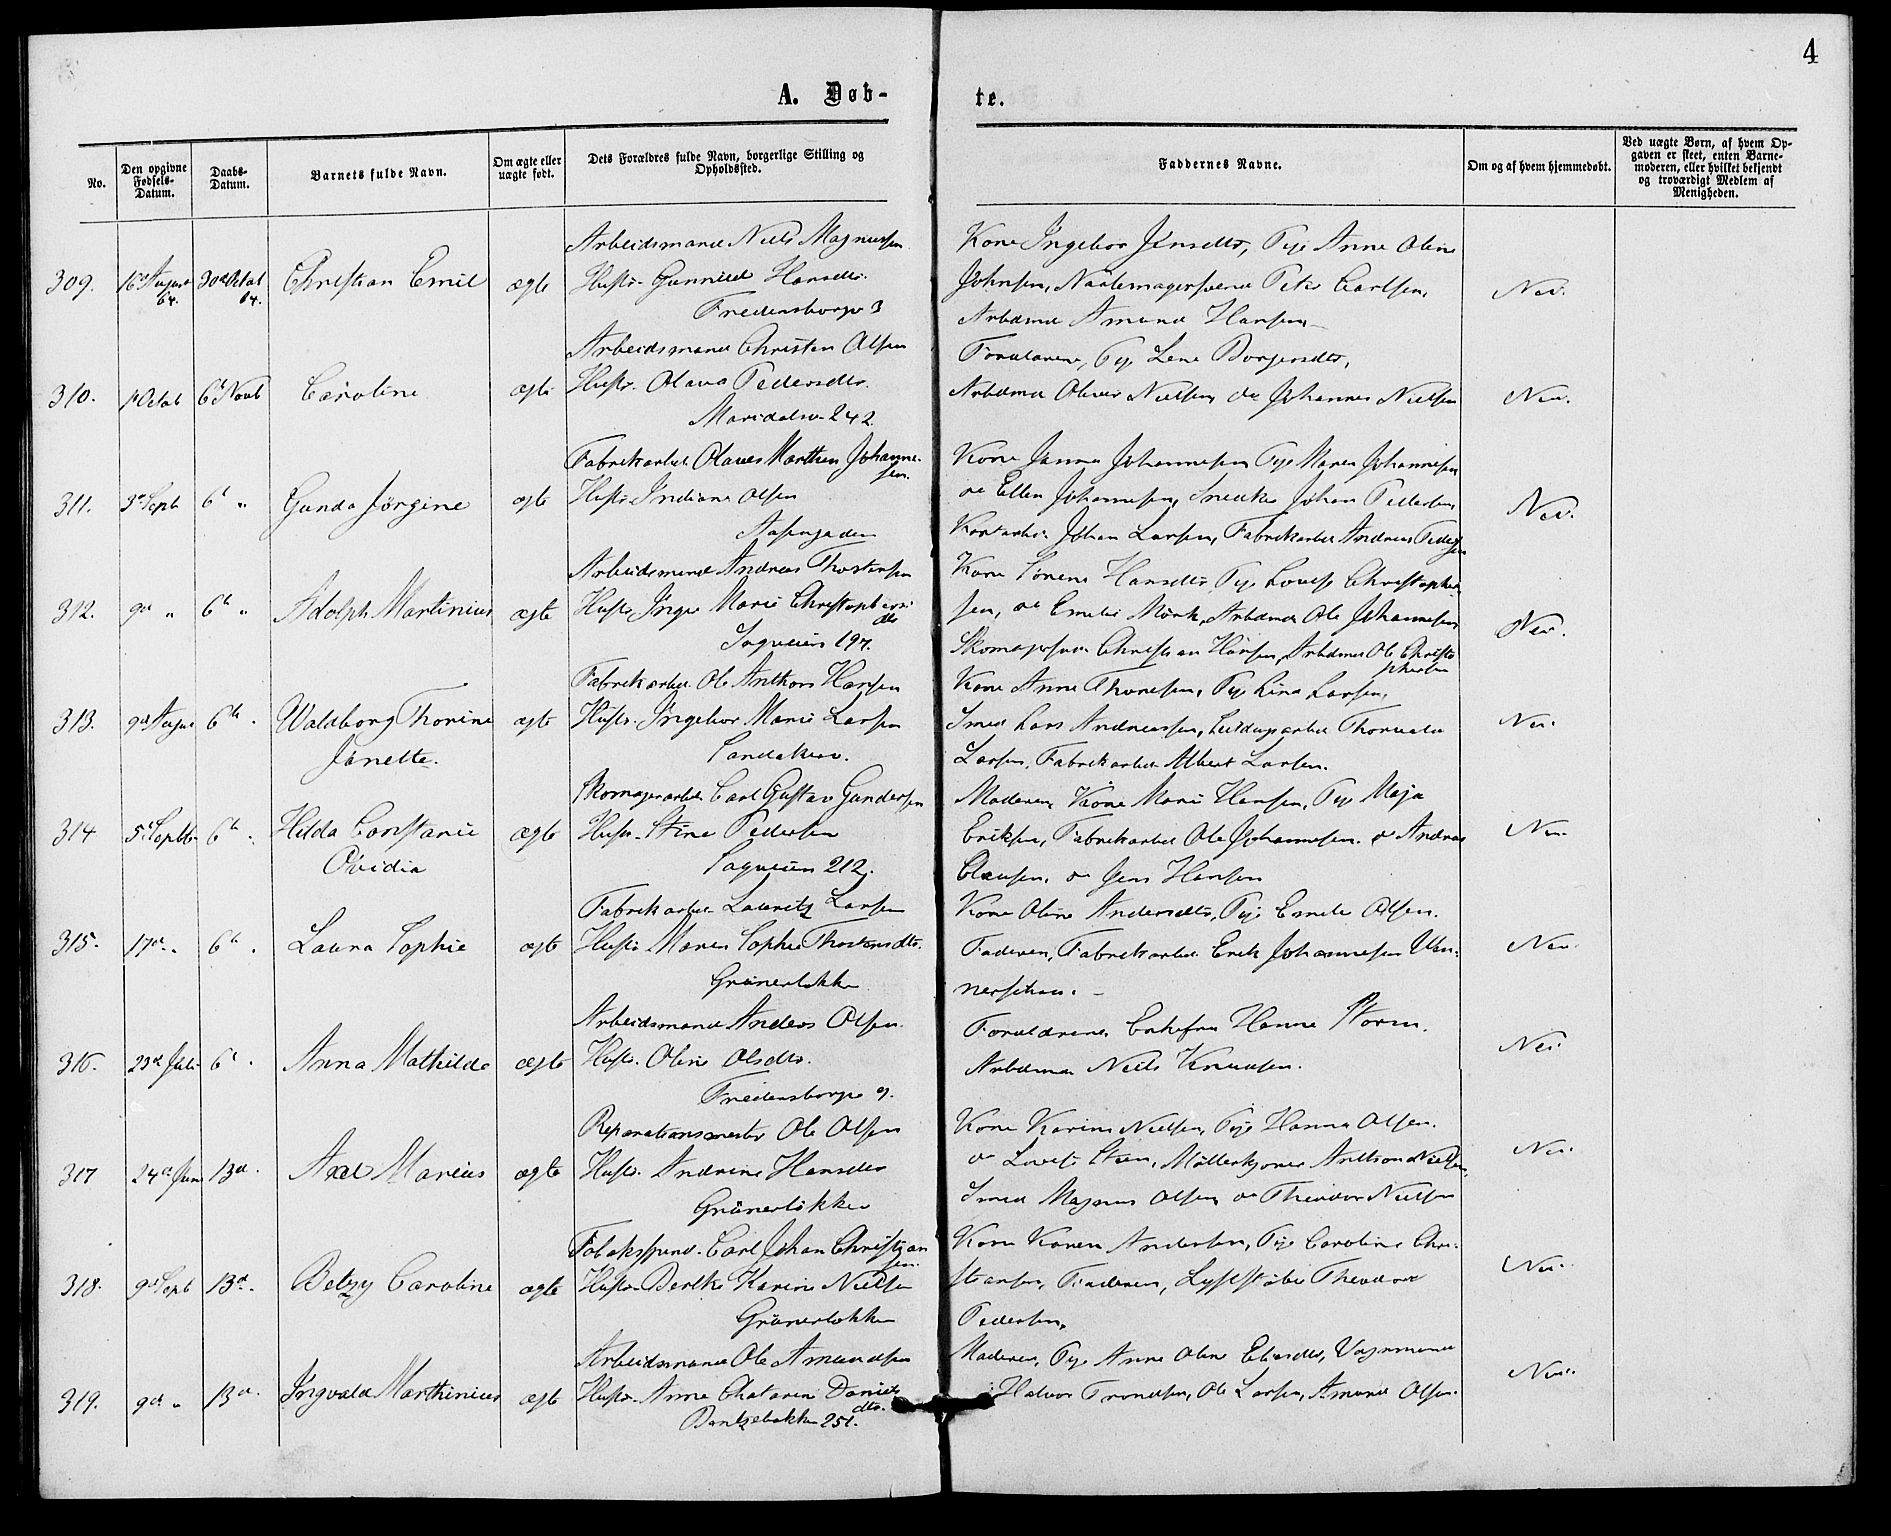 4
A. Døb-
te.
No.
Den opgivne Fødsels-Datum.
Daabs-Datum.
Barnets fulde Navn.
Om ægte eller uægte født.
Dets Forældres fulde Navn, borgerlige Stilling og Opholdssted.
Faddernes Navne.
Om og af hvem hjemmedøbt.
Ved uægte Børn, af hvem Opgaven er skeet, enten Barnemoderen, eller hvilket bekjendt og troværdigt Medlem af Menigheden.
Arbeidsmand Niels Magnussen
Kone Ingebor Jensdtr, Pige Anne Oline
309. 16de August 64. 30te Octob 64. Christian Emil ægte Hustr. Gunnild Hansdtr.
Johnsen, Naalemagersvend Peter Carlsen, Nei.
Fredensborgv 3
Arbdmd Amund Hansen
Arbeidsmand Christen Olsen
Forældrene, Pige Lene Borgersdtr,
310. 1t Octob 6t Novb Caroline ægte Hustr. Olava Pedersdtr.
Arbdmd Oliver Nielsen, og Johannes Nielsen Nei.
Maridalsv. 242
Fabrikarbd. Olaves Marthin Johannesen.
Kone Janna Johannesen Pige Maren Johannesen
311. 3de Septb 6t " Gunda Jørgine ægte Hustr. Indiana Olsen
og Ellen Johannesen, Snedker Johan Pedersen, Nei.
Aasengaden
Johan Larsen, Fabrikarbd Andreas Pedersen
Arbeidsmand Andreas Thostensen
Kone Sørene Hansdtr Pige Lovise Christopher-
312. 9de " 6t " Adolph Martinius ægte Hustr. Inger Marie Christophersdtr
sen, og Emilie Mørk, Arbdmd Ole Johannesen Nei.
Sagveien 197.
Skomagersvend Christian Hansen, Arbdmd Ole Christophersen
Fabrikarbd. Ole Anthon Hansen
Kone Anne Thoresen, Pige Lina Larsen,
313. 9de August 6te " Waldborg Thorine ægte Hustr. Ingebor Marie Larsen
Smed Lars Andreassen, Thorvald Nei.
Janette. Sandakerv.
Larsen, Fabrikarbd. Albert Larsen.
Skomagerarbd. Carl Gustav Gundersen
Moderen, Kone Marie Hansen, Pige Maja
314 5t Septbr 6t " Hilda Constanse ægte Hustr. Stine Pedersen
Eriksen, Fabrikarbd Ole Johannesen. og Andreas Nei.
Ovidia Sagveien 212.
Clausen, og Jens Hansen
Fabrikarbd. Lauritz Larsen
Kone Oline Andersdtr, Pige Emilie Olsen.
315. 17de " 6t " Laura Sophie ægte Hustr. Maren Sophie Thostensdtr.
Faderen, Fabrikarbd. Erik Johannesen Nei.
Grünerløkken
Arbeidsmand Anders Olsen.
Forældrene, Enkefru Hanne Storm.
316. 23de Juli 6t " Anna Mathilde ægte Hustr. Oline Olsdtr.
Arbdmd Niels Knudsen. Nei.
Fredensborgv 9.
Reparationsmester Ole Olsen
Kone Karine Nielsen, Pige Hanna Olsen.
317 24de Juni 13de. Axel Marius ægte Hustr. Andrine Hansdtr
og Lovise Steen, Anthon Nielsen, Nei.
Grünerløkken
Smed Magnus Olsen og Theodor Nielsen
Tobaksspind. Carl Johan Christiansen.
Kone Karen Andersen, Pige Caroline Chri-
318. 9de Septb 13de. Betzy Caroline ægte Hustr. Dortke Karine Nielsen
stiansen, Faderen, Lysestøber Theodor Nei.
Grünerløkken
Pedersen,
Arbeidsmand Ole Amundsen
Moderen, Pige Anne Oline Eliasdtr, Vognmand
319. 9de " 13de. Ingvald Marthinius ægte Hustr. Anne Chatarine Danielsdtr.
Halvor Trondsen, Ole Larsen, Amund Olsen. Nei.
Bentsebakken 251.